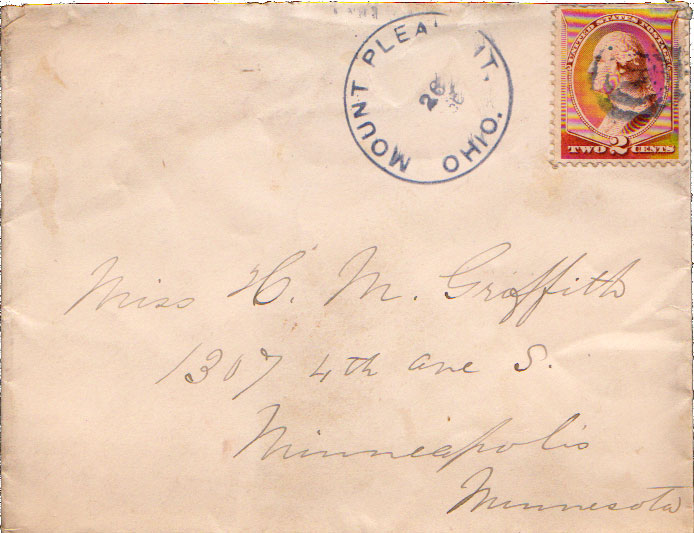 MOUNT PLEASANT.
OHIO.
26
UNITED STATES POSTAGE
TWO 2 CENTS
Miss H. M. Griffith
1307 4th ave S.
Minneapolis
Minnesota